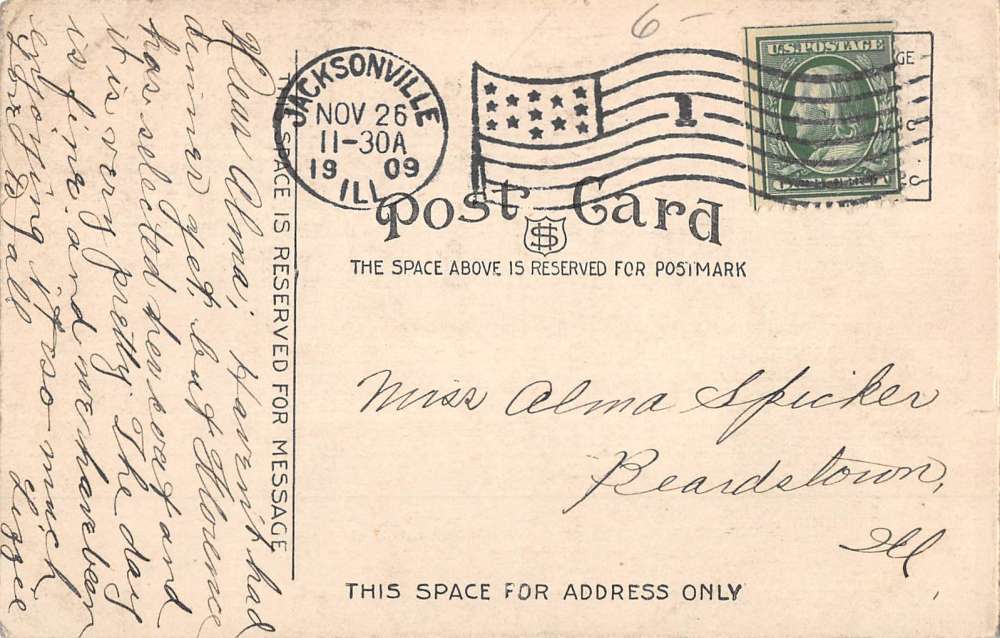 Dear Alma; Havn't had
dinner yet, but Florence
has selected her coat and
it is very pretty. The day
is fine. and we have been
enjoying it so much
Love to all Lizzie
THE SPACE IS RESERVED FOR MESSAGE
6
JACKSONVILLE
NOV 26
11-30A
1909
ILL
1
U.S. POSTAGE
Post Card
THE SPACE ABOVE IS RESERVED FOR POSTMARK
Miss Alma Spicker
Beardstown,
Ill
THIS SPACE FOR ADDRESS ONLY